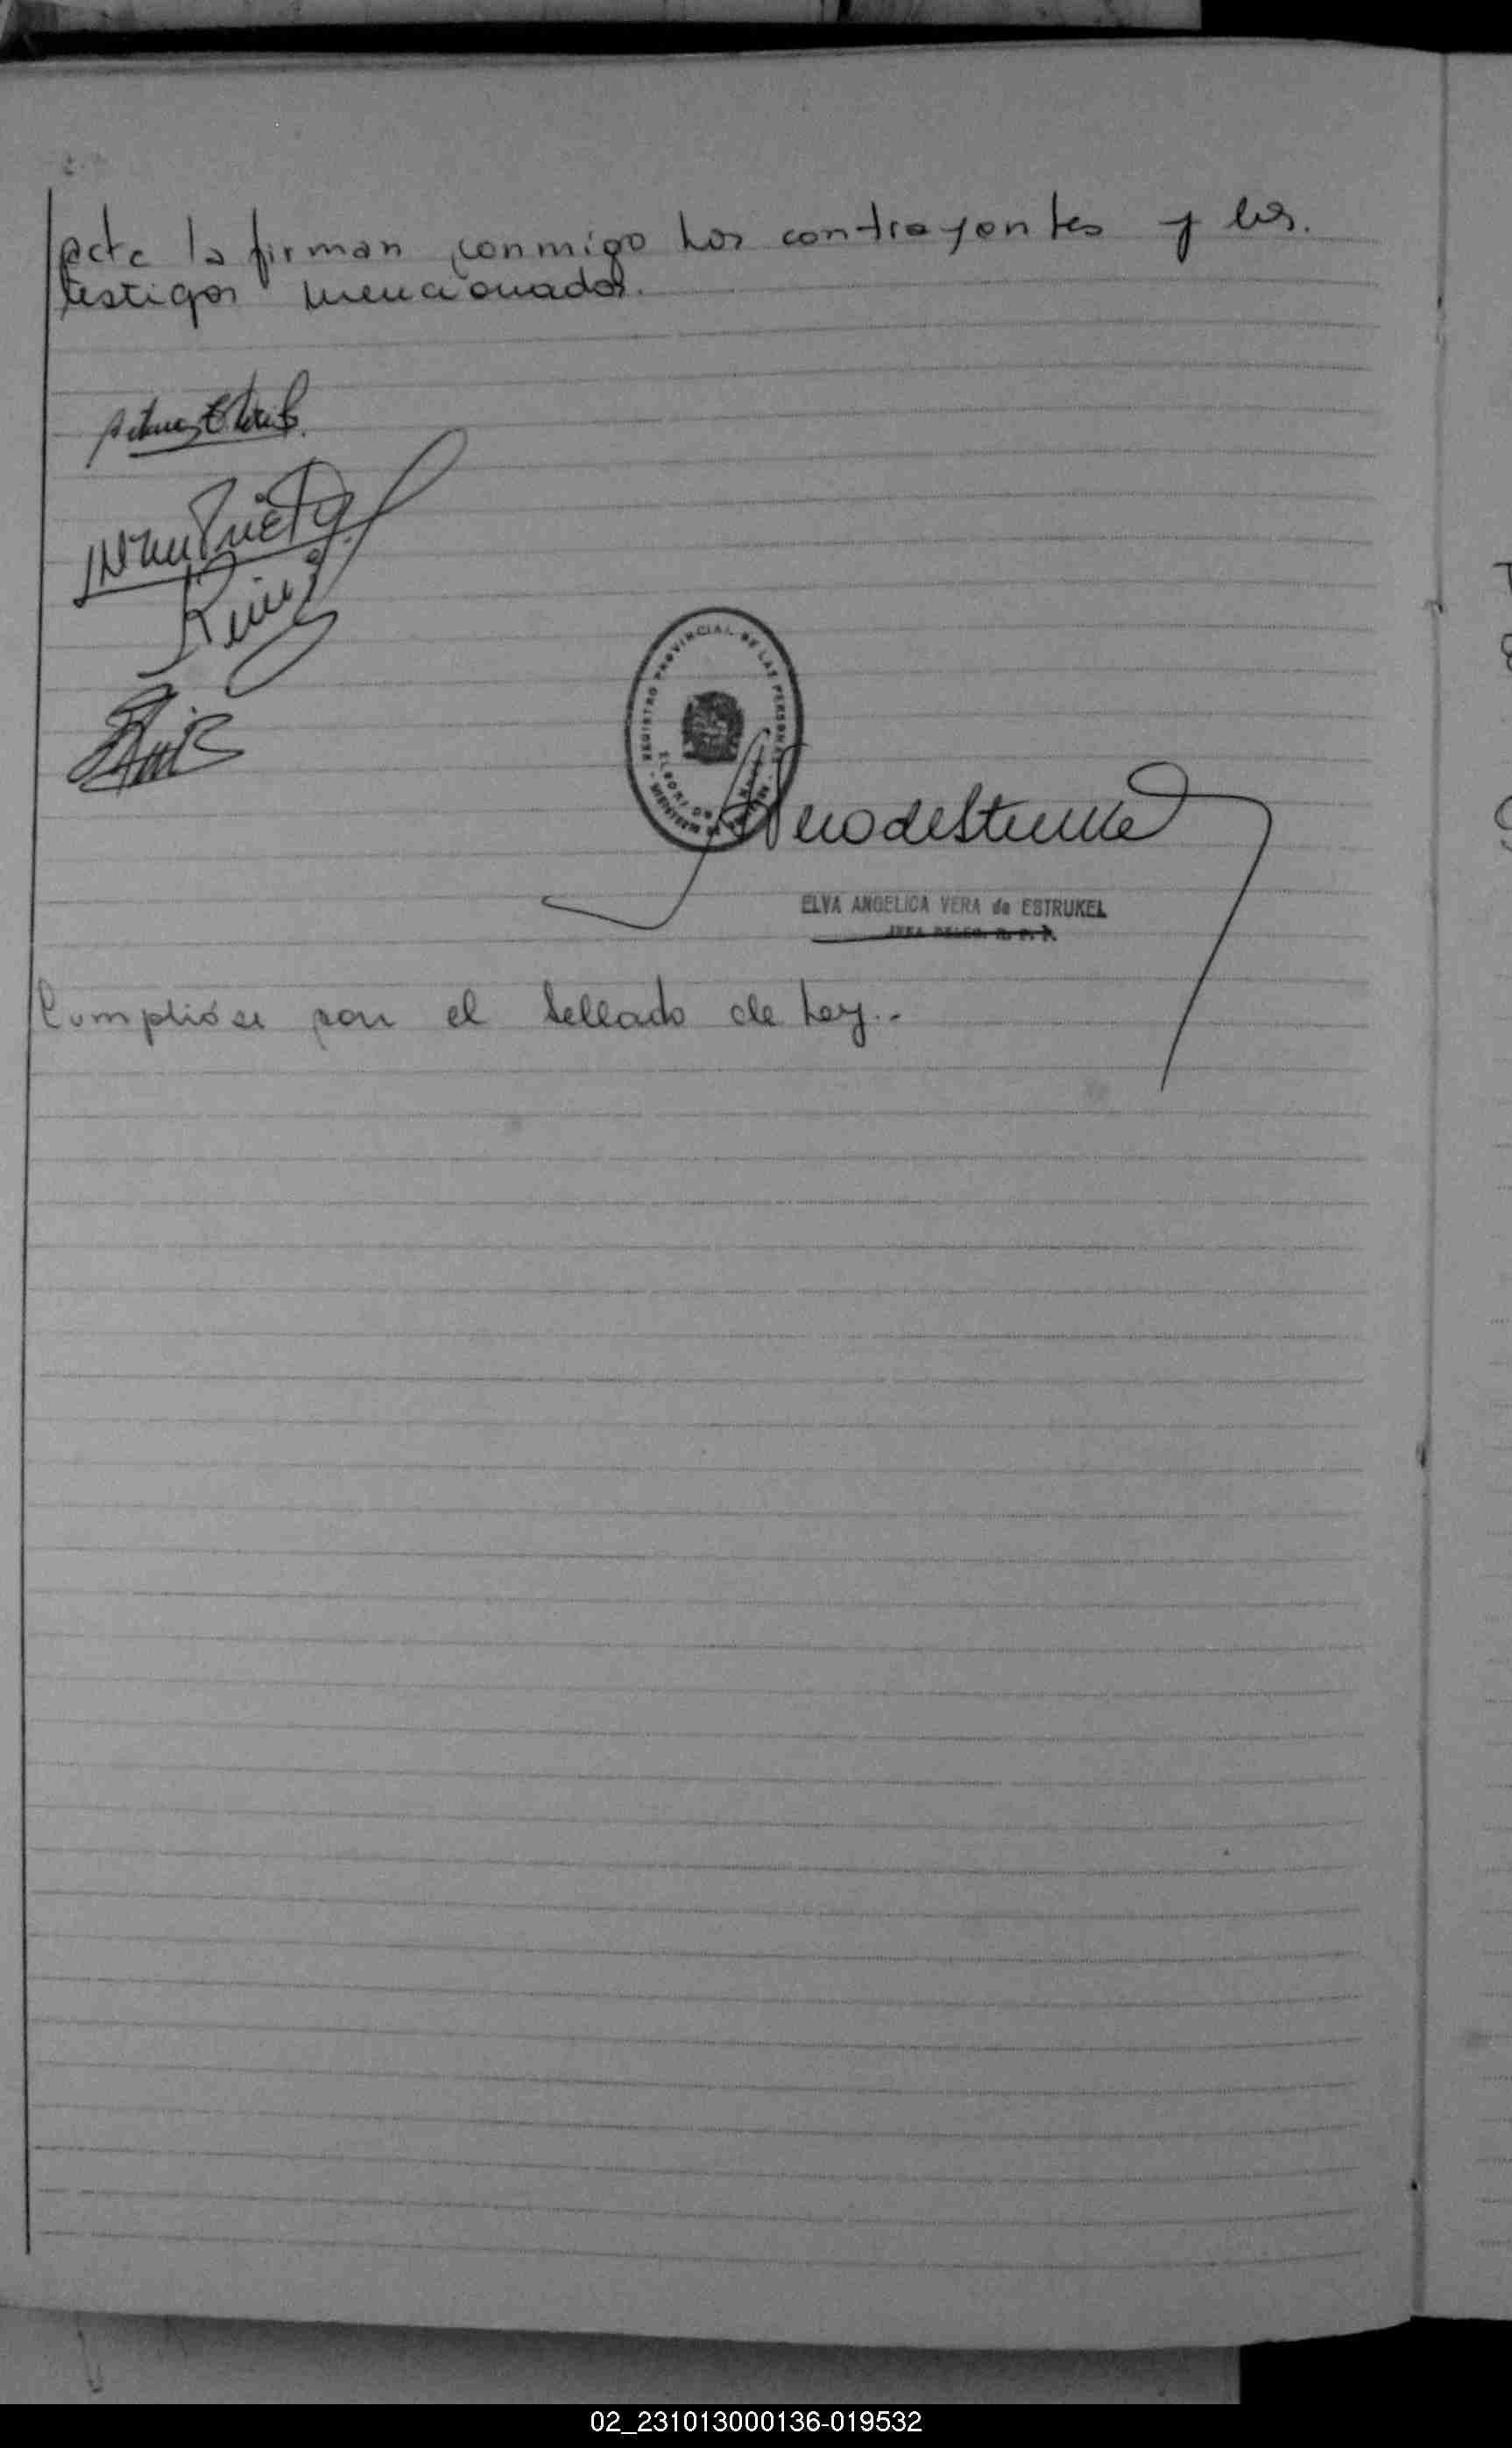 acta la firman conmigo los contrayentes y los.
testigos mencionados.
REGISTRO PROVINCIAL DE LAS PERSONAS
ELDORADO
ELVA ANGELICA VERA de ESTRUKEL
Cumplióse con el sellado de Ley.-
02_231013000136-019532